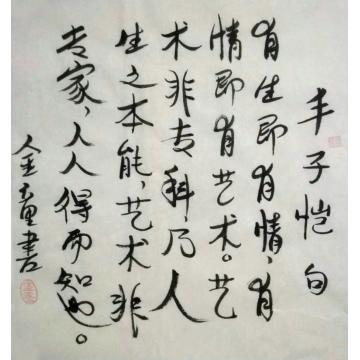 丰子恺句
有生即有情，有
情即有艺术。艺
术非专科，乃人
生之本能，艺术非
专家，人人得而知也。
金童書